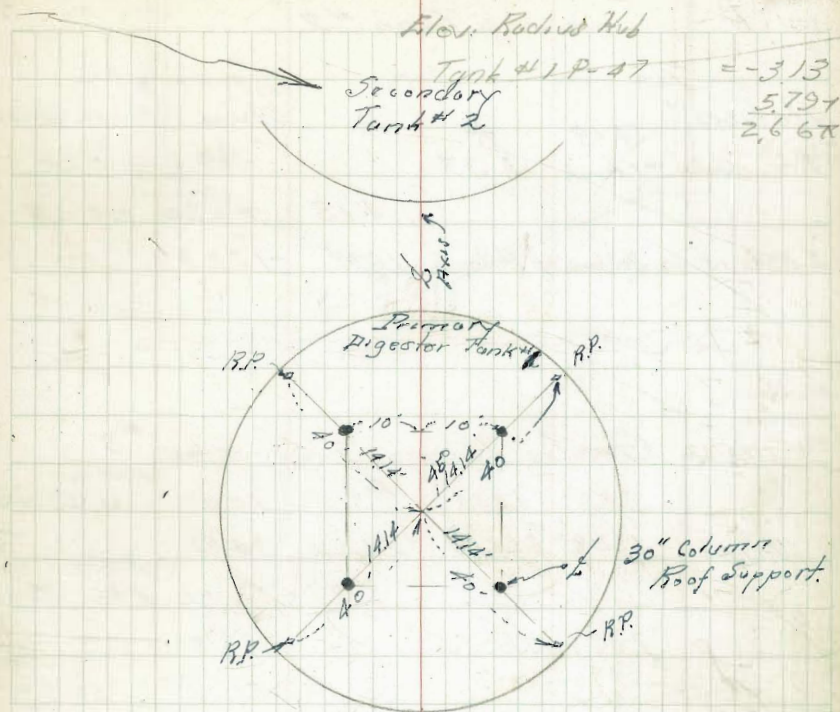 Elev. Radius Hub
Tank #1 P-47 = -3.13
5.79+
2.66
Secondary
Tank # 2
℄ Axis
Primary
Digester Tank #1
R.P.
R.P.
10 10
40 14.14 45° 14.14 40
14.14 14.14
40 40
℄
30" Column
Roof Support.
R.P.
R.P.